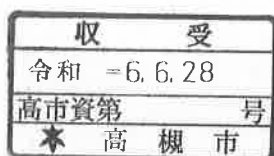 収 受
令和 -6.6.28
高市資第 号
高槻市